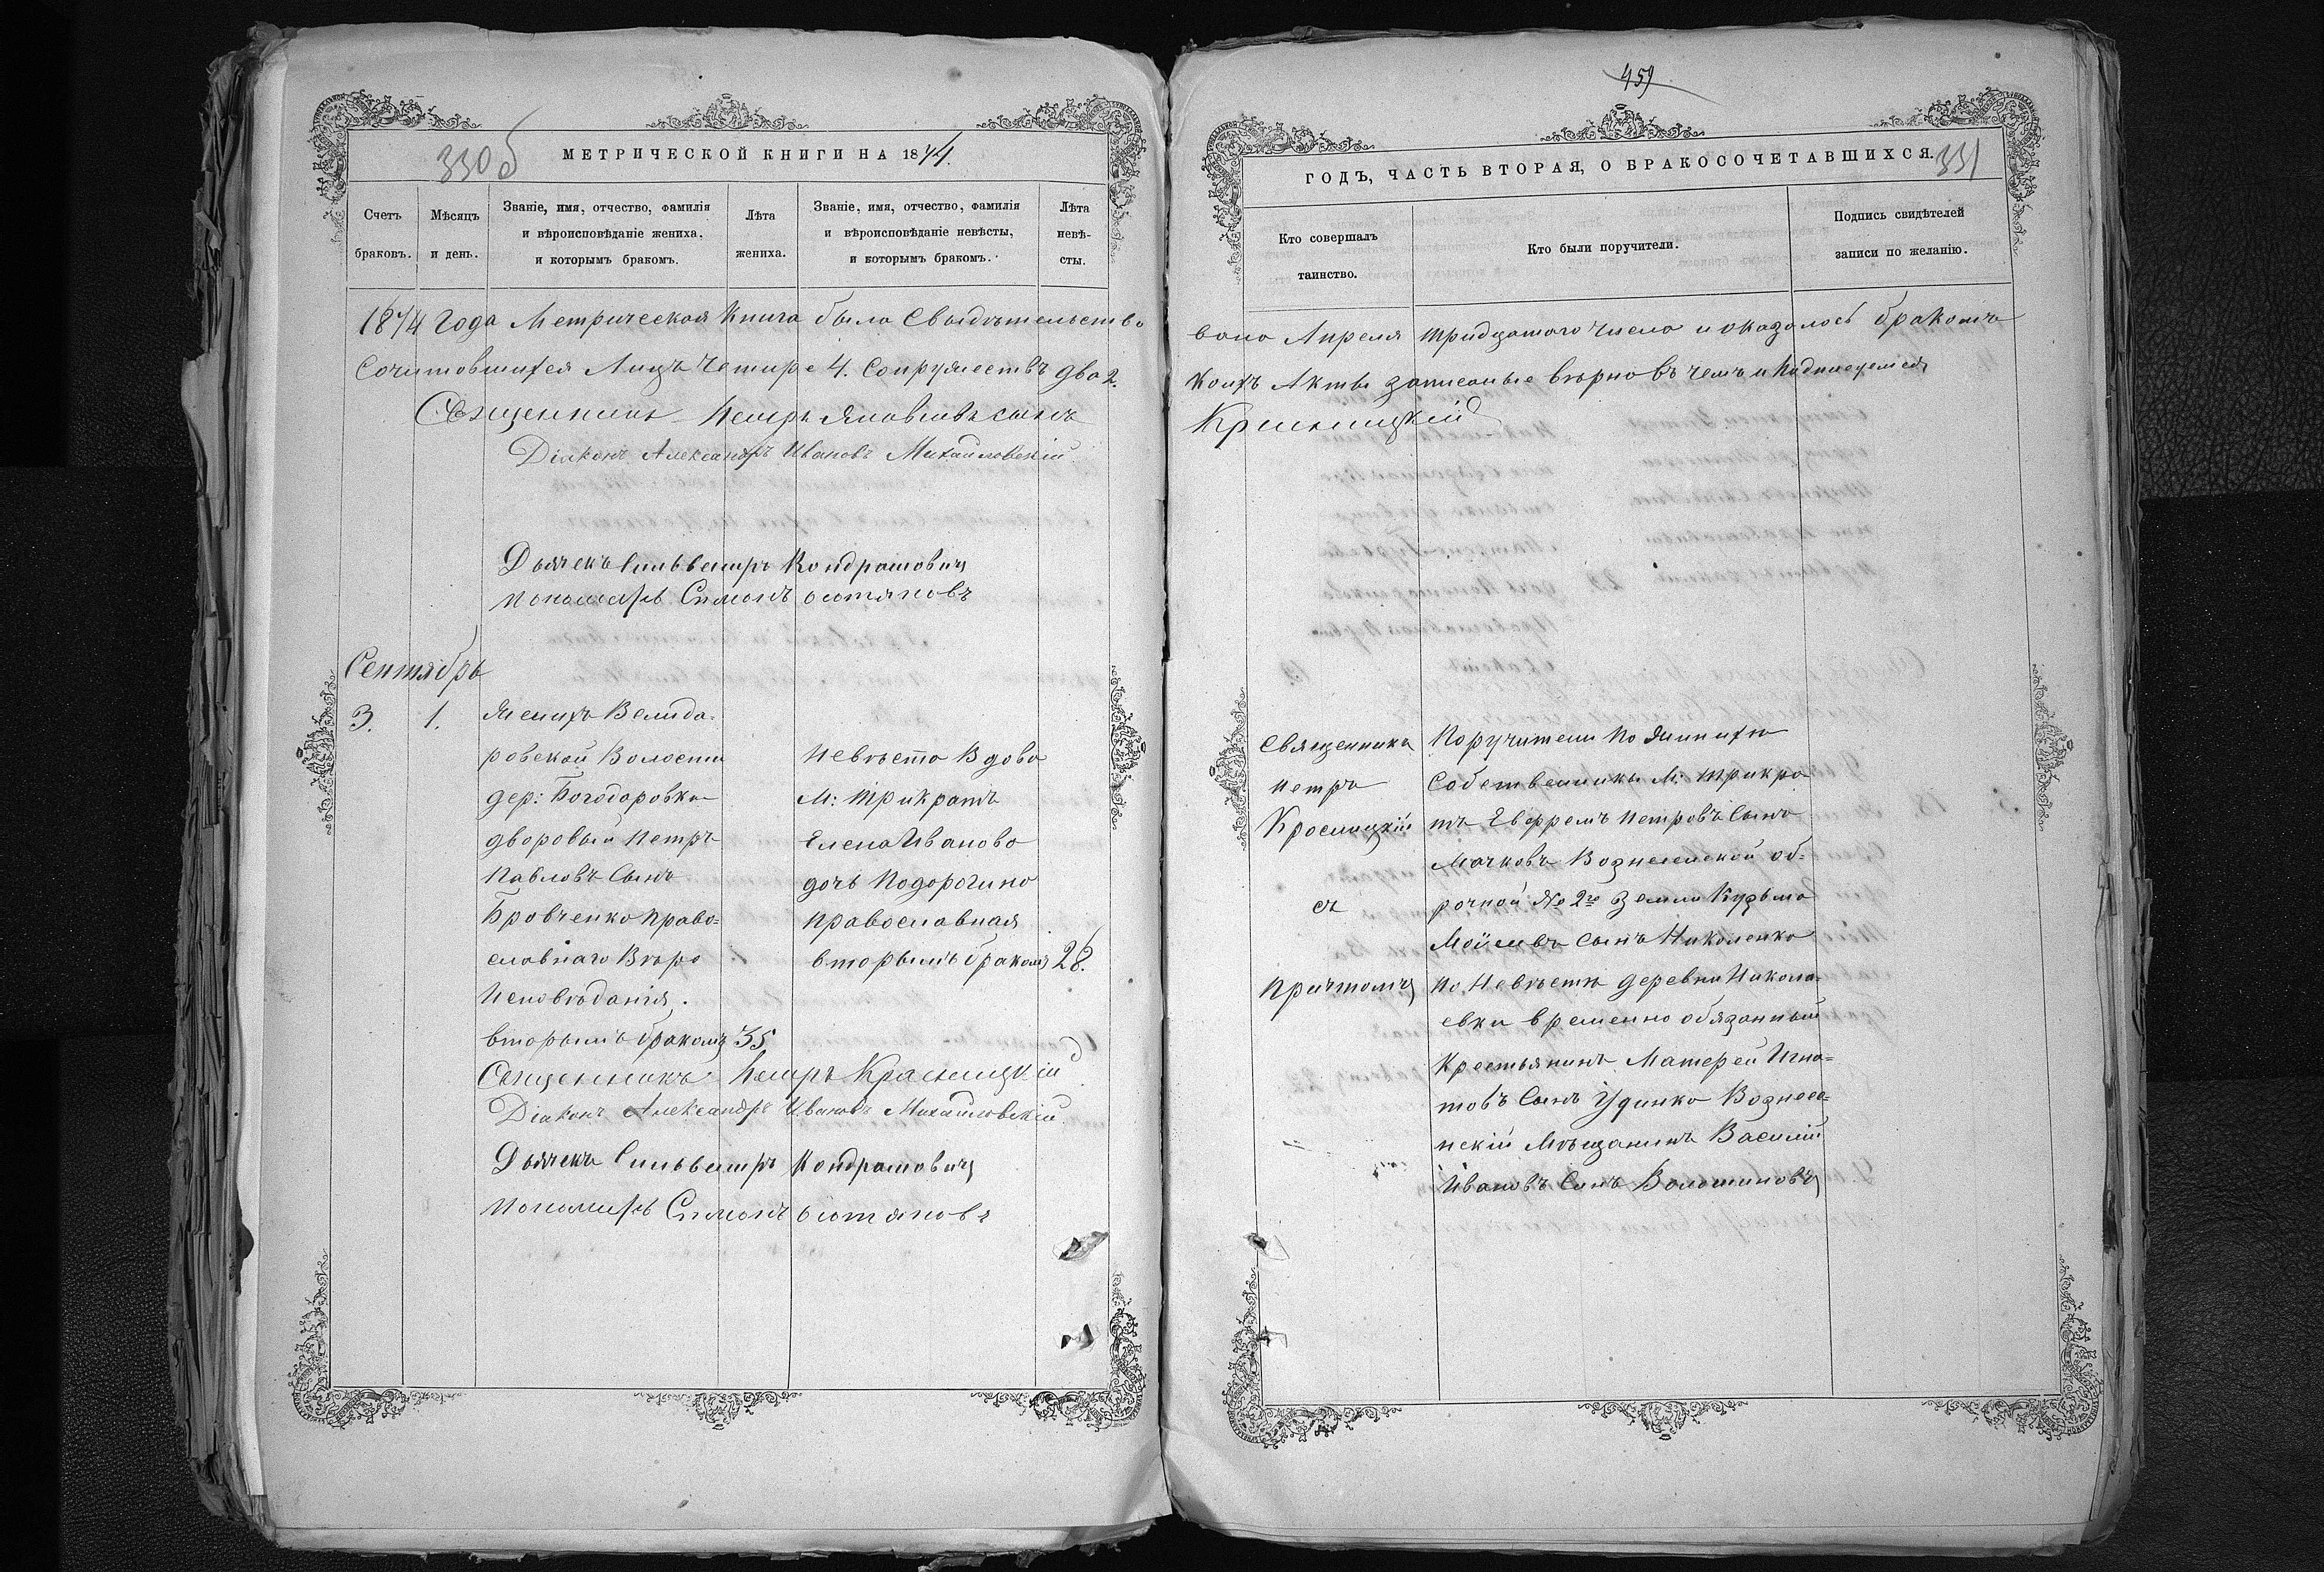 330 б
МЕТРИЧЕСКОЙ КНИГИ НА 1874.
Счетъ браковъ.
Мѣсяцъ и день.
Званіе, имя, отчество, фамилія и вѣроисповѣданіе жениха, и которымъ бракомъ.
Лѣта жениха.
Званіе, имя, отчество, фамилія и вѣроисповѣданіе невѣсты, и которымъ бракомъ.
Лѣта невѣ-сты.
1874 года Метрическая Книга была Свыдѣтельство
Сочитовшихся Лицъ Четыре 4. Сопружествъ два 2.
Священникъ Петръ
Діаконъ Александръ Ивановъ Михайловскій
Дьячекъ Сильвестръ Кондратовичъ
Пономарь Симонъ
Сентябрь
3. 1.
Женихъ Велидо-
ровской Волости
дер: Богодаровки
дворовый Петръ
Павловъ Сынъ
Бровченко право-
славнаго Вѣро
Исповѣданія.
вторымъ бракомъ 35
Невѣста Вдова
М: Трикратъ
Елена Иванова
дочь Подорогина
православная
вторымъ бракомъ 28.
Священникъ Петръ Красницкій
Діаконъ Александръ Ивановъ Михайловскій
Дьячекъ Сильвестръ Кондратовичъ
Пономарь Симонъ
459
ГОДЪ, ЧАСТЬ ВТОРАЯ, О БРАКОСОЧЕТАВШИХСЯ. 331
Кто совершалъ таинство.
Кто были поручители.
Подпись свидѣтелей записи по желанію.
вано Апреля тридцатого числа и оказалось бракомъ
коихъ Акты записаные вѣрно въ чемъ и подписуемся
Красницкій
Священникъ
Петръ
Красницкій
съ
Причтомъ
Поручители по жинихи
Собственники М: Трикра
тъ Ефремъ Петровъ Сынъ
Мачковъ Вознесенской об-
рочной № 2го Земли Кузьма
Моисевъ сынъ Николенко
по Невѣсти деревни Никола-
евки временно обязанный
Крестьянинъ Матфей Игна-
товъ Сынъ Удинко Вознесе-
нскій Мѣщанинъ Василій
Ивановъ Сынъ Волошиновъ